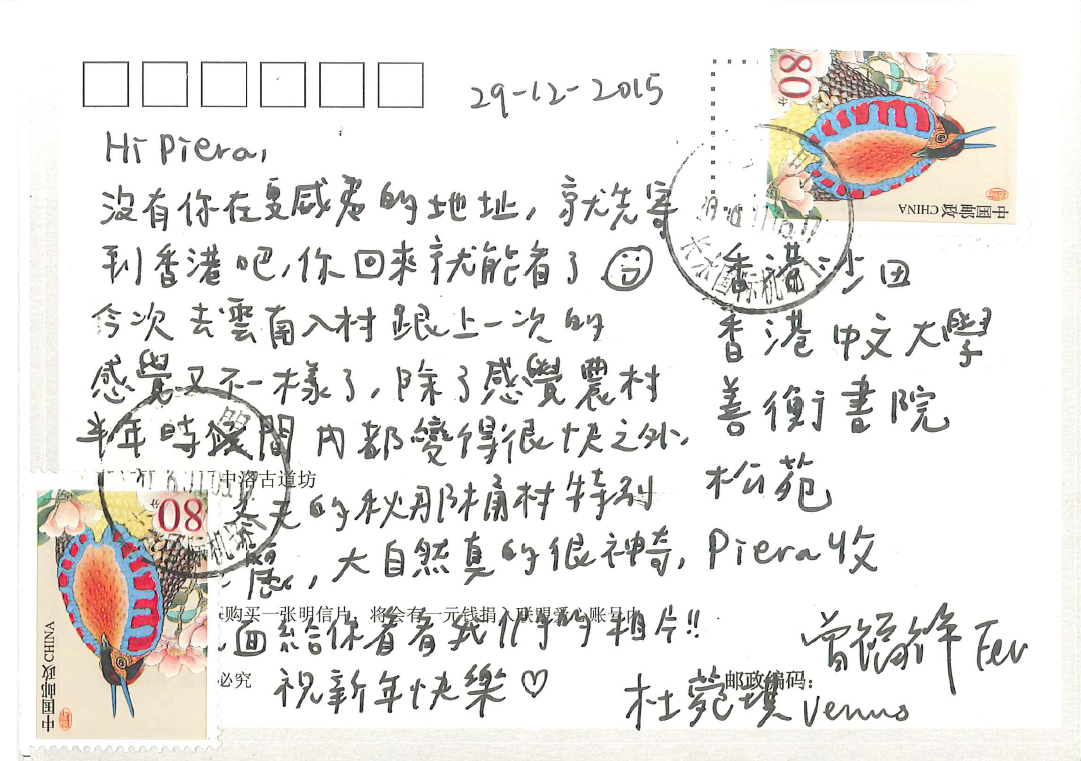 29-12-2015
Hi Piera,
沒有你在夏威夷的地址，就先寄
到香港吧，你回來就能看了
今次去雲南入村跟上一次的
感覺又不一樣了，除了感覺農村
半年時間內都變得很快之外，
冬天的秋那桶村特別
大自然真的很神奇，
回給你看看我們的相片!!
祝新年快樂♡
香港沙田
香港中文大學
善衡書院
松苑
Piera收
Fev
杜菀璞 Venus
中洛古道坊
购买一张明信片，将会有一元钱捐入联盟爱心账号内
必究
邮政编码：
80分
中国邮政 CHINA
国际机
80分
中国邮政 CHINA